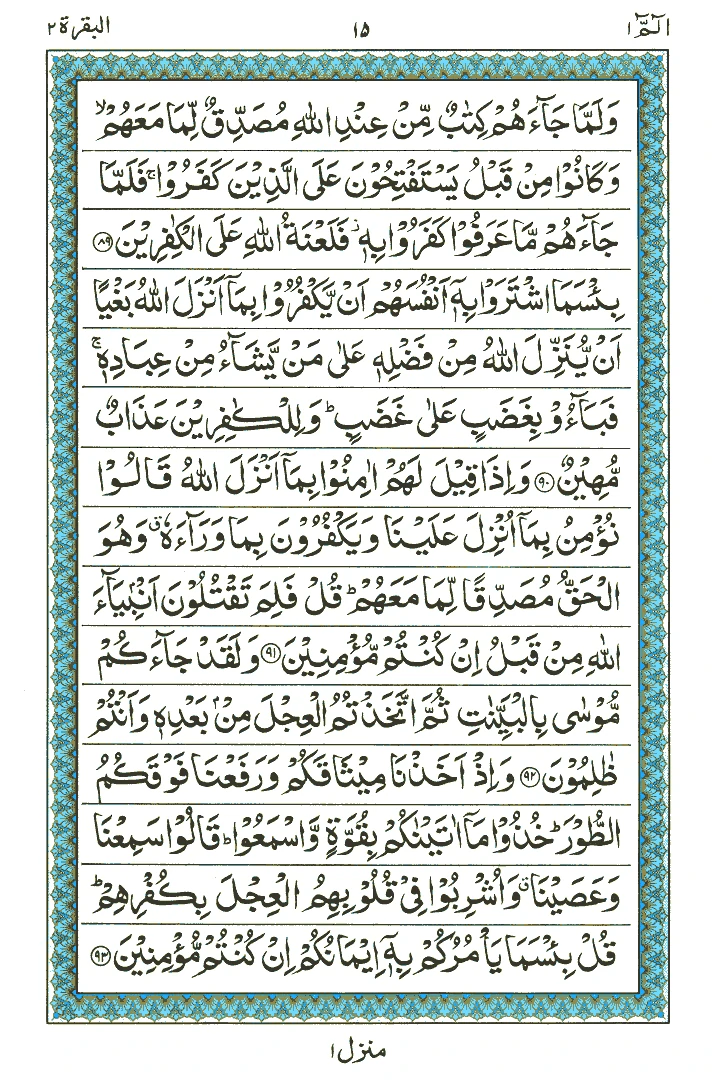 البقرة ٢ ١٥ الٓمّٓ ١
وَلَمَّا جَآءَهُمْ كِتٰبٌ مِّنْ عِنْدِ اللّٰهِ مُصَدِّقٌ لِّمَا مَعَهُمْ ۙ
وَكَانُوْا مِنْ قَبْلُ يَسْتَفْتِحُوْنَ عَلَى الَّذِيْنَ كَفَرُوْا ۚ فَلَمَّا
جَآءَهُمْ مَّا عَرَفُوْا كَفَرُوْا بِهٖ ۫ فَلَعْنَةُ اللّٰهِ عَلَى الْكٰفِرِيْنَ ﴿٨٩﴾
بِئْسَمَا اشْتَرَوْا بِهٖٓ اَنْفُسَهُمْ اَنْ يَّكْفُرُوْا بِمَآ اَنْزَلَ اللّٰهُ بَغْيًا
اَنْ يُّنَزِّلَ اللّٰهُ مِنْ فَضْلِهٖ عَلٰى مَنْ يَّشَآءُ مِنْ عِبَادِهٖ ۚ
فَبَآءُوْ بِغَضَبٍ عَلٰى غَضَبٍ ؕ وَلِلْكٰفِرِيْنَ عَذَابٌ
مُّهِيْنٌ ﴿٩٠﴾ وَاِذَا قِيْلَ لَهُمْ اٰمِنُوْا بِمَآ اَنْزَلَ اللّٰهُ قَالُوْا
نُؤْمِنُ بِمَآ اُنْزِلَ عَلَيْنَا وَيَكْفُرُوْنَ بِمَا وَرَآءَهٗ ۗ وَهُوَ
الْحَقُّ مُصَدِّقًا لِّمَا مَعَهُمْ ؕ قُلْ فَلِمَ تَقْتُلُوْنَ اَنْۢبِيَآءَ
اللّٰهِ مِنْ قَبْلُ اِنْ كُنْتُمْ مُّؤْمِنِيْنَ ﴿٩١﴾ وَلَقَدْ جَآءَكُمْ
مُّوْسٰى بِالْبَيِّنٰتِ ثُمَّ اتَّخَذْتُمُ الْعِجْلَ مِنْۢ بَعْدِهٖ وَاَنْتُمْ
ظٰلِمُوْنَ ﴿٩٢﴾ وَاِذْ اَخَذْنَا مِيْثَاقَكُمْ وَرَفَعْنَا فَوْقَكُمُ
الطُّوْرَ ؕ خُذُوْا مَآ اٰتَيْنٰكُمْ بِقُوَّةٍ وَّاسْمَعُوْا ؕ قَالُوْا سَمِعْنَا
وَعَصَيْنَا ۗ وَاُشْرِبُوْا فِيْ قُلُوْبِهِمُ الْعِجْلَ بِكُفْرِهِمْ ؕ
قُلْ بِئْسَمَا يَاْمُرُكُمْ بِهٖٓ اِيْمَانُكُمْ اِنْ كُنْتُمْ مُّؤْمِنِيْنَ ﴿٩٣﴾
منزل ١